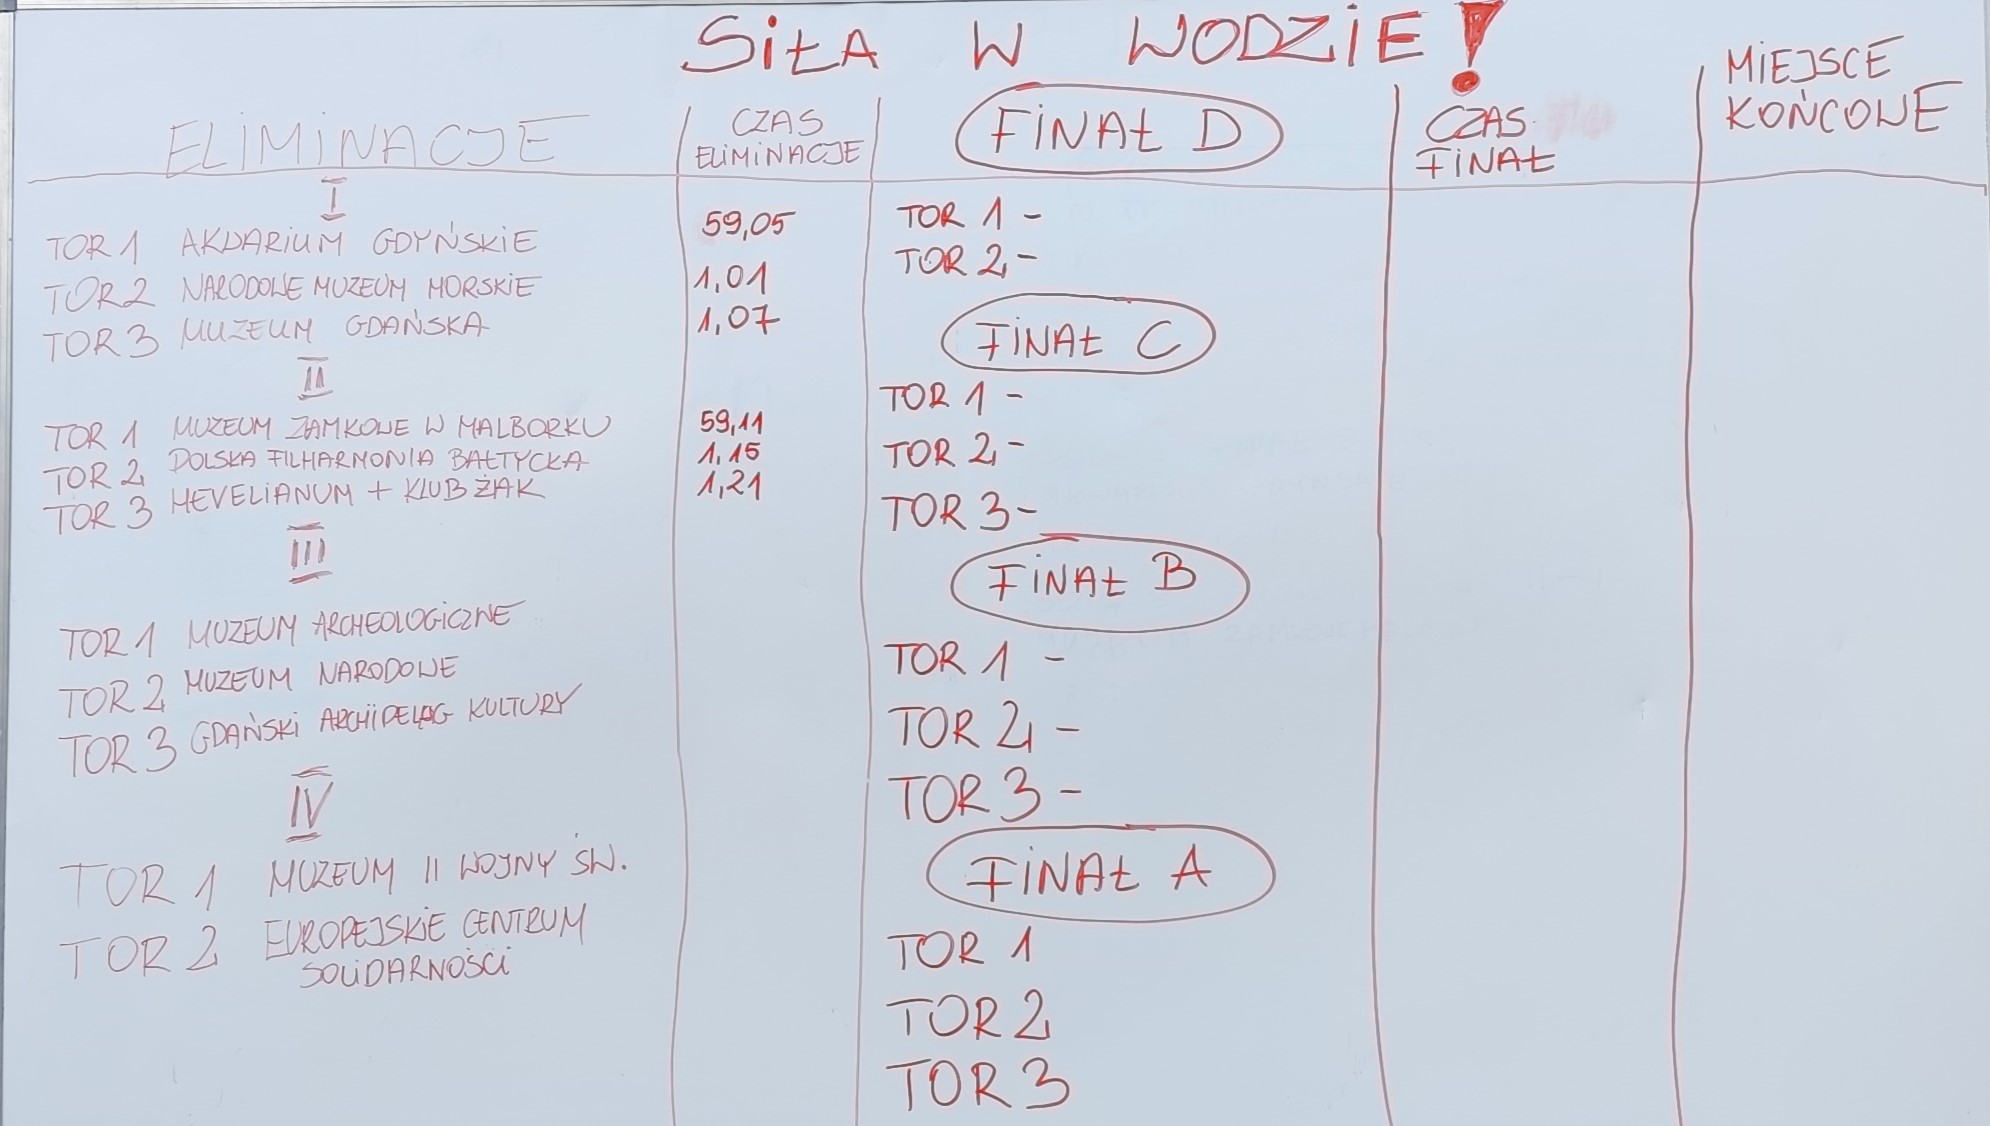 SIŁA W WODZIE!
ELIMINACJE
CZAS
ELIMINACJE
FINAŁ D
CZAS
FINAŁ
MIEJSCE
KOŃCOWE
I
TOR 1 AKWARIUM GDYŃSKIE 59,05
TOR 2 NARODOWE MUZEUM MORSKIE 1,01
TOR 3 MUZEUM GDAŃSKA 1,07
II
TOR 1 MUZEUM ZAMKOWE W MALBORKU 59,11
TOR 2 POLSKA FILHARMONIA BAŁTYCKA 1,15
TOR 3 HEVELIANUM + KLUB ŻAK 1,21
III
TOR 1 MUZEUM ARCHEOLOGICZNE
TOR 2 MUZEUM NARODOWE
TOR 3 GDAŃSKI ARCHIPELAG KULTURY
IV
TOR 1 MUZEUM II WOJNY ŚW.
TOR 2 EUROPEJSKIE CENTRUM
SOLIDARNOŚCI
TOR 1 -
TOR 2 -
FINAŁ C
TOR 1 -
TOR 2 -
TOR 3 -
FINAŁ B
TOR 1 -
TOR 2 -
TOR 3 -
FINAŁ A
TOR 1
TOR 2
TOR 3